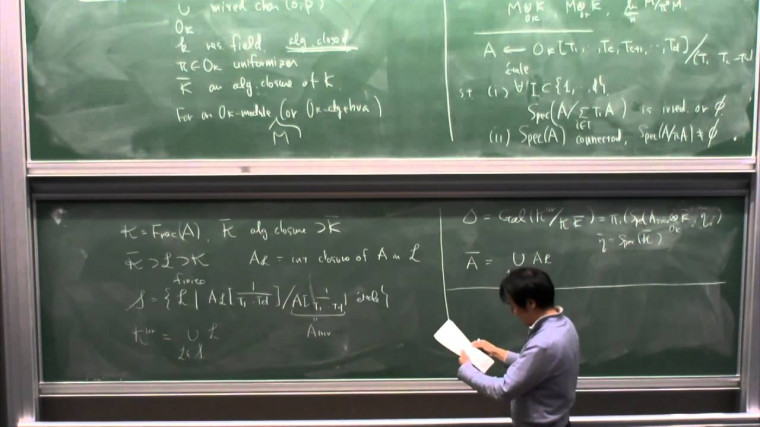 ∪ mixed char (0,p)
O_K
k res field, alg. closed
π ∈ O_K uniformizer
K̄ an alg. closure of K.
For an O_K-module (or O_K-algebra)
M
M⊗K M⊗K̄, lim M/πⁿM.
O_K O_K
A ← O_K[T₁, …, T_c, T_{c+1}, …, T_d]/
étale
s.t. (i) ∀ I ⊂ {1, .. d},
Spec(A/Σ T_i A) is irred. or ∅
i∈I
(ii) Spec(A) connected, Spec(A/πA) ≠ ∅.
K = Frac(A), K̄ alg closure ⊃ K̄
K̄ ⊃ L ⊃ K A_L = int closure of A in L
finite
S = { L | A_L[1/T₁⋯T_d] / A[1/T₁⋯T_d] étale }
A_triv
K^ur = ∪ L
L∈S
Δ = Gal(K^ur/K K̄) = π₁(Spec(A_triv ⊗ K̄, η̄)
O_K
η̄ = Spec(K̄)
Ā = ∪ A_L